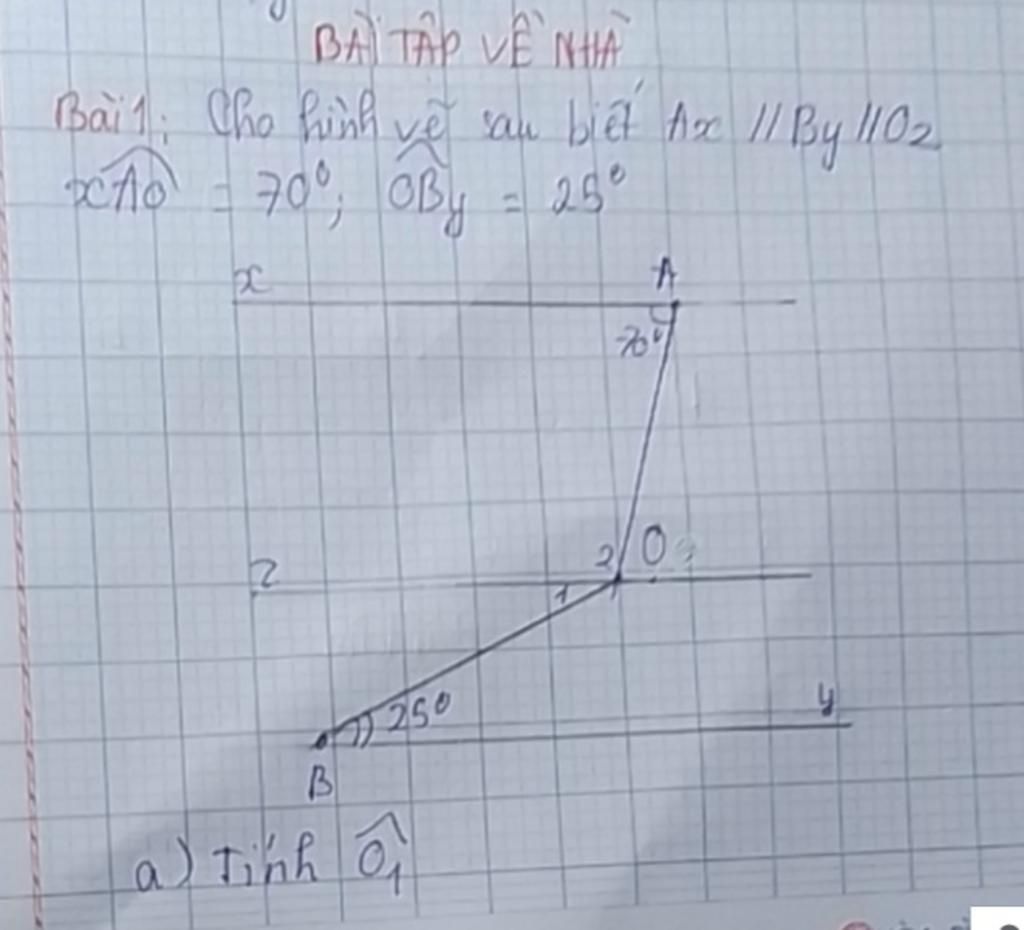 BÀI TẬP VỀ NHÀ
Bài 1: Cho hình vẽ sau biết Ax // By // Oz
xAO = 70°; OBy = 25°
x A
70°
2 O
z 1
25° y
B
a) Tính Ô1